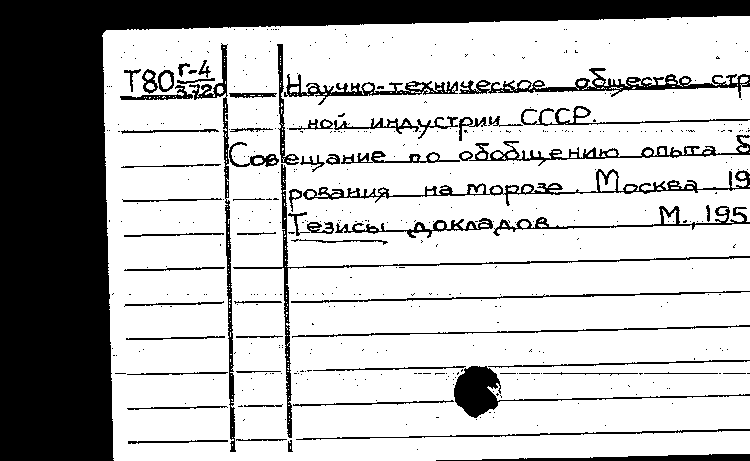 Т80 г-4 Научно-техническое общество стр
3720
ной индустрии СССР.
Совещание по обобщению опыта б
рования на морозе. Москва. 19
Тезисы докладов. М., 195